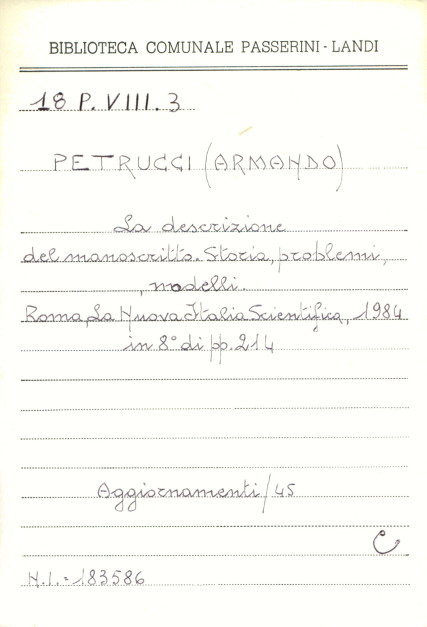 BIBLIOTECA COMUNALE PASSERINI - LANDI
18 P. VIII. 3
PETRUCCI (ARMANDO)
La descrizione
del manoscritto. Storia, problemi,
modelli.
Roma, La Nuova Italia Scientifica, 1984
in 8° di pp. 214
Aggiornamenti/45
C
N.I. = 183586